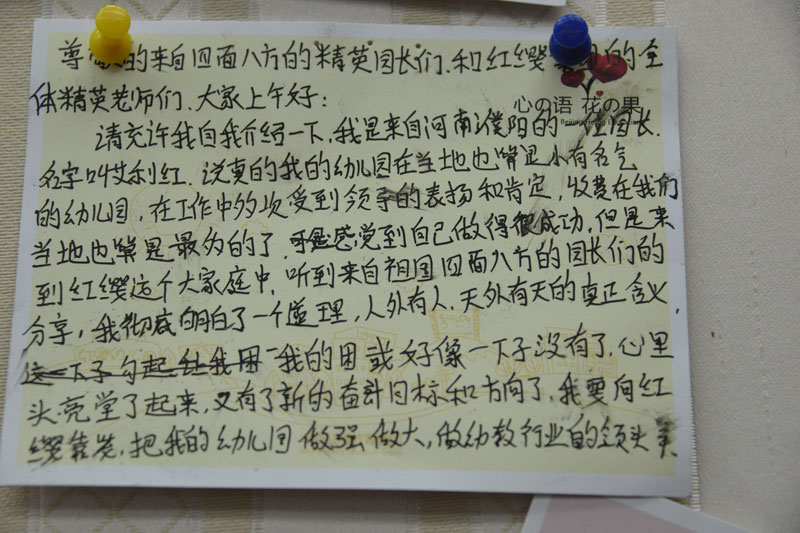 尊 的来自四面八方的精英园长们、和红缨 的全
体精英老师们、大家上午好：
心の语 花の果
请允许我自我介绍一下，我是来自河南濮阳的一位园长.
名字叫艾利红. 说真的我的幼儿园在当地也算是小有名气
的幼儿园，在工作中多次受到领导的表扬和肯定，收费在我们
当地也算是最 的了. 可是感觉到自己做得很成功，但是来
到红缨这个大家庭中，听到来自祖国四面八方的园长们的
分享，我彻底明白了一个道理，人外有人，天外有天的真正含义，
我的困或好像一下子没有了. 心里
头亮堂了起来，又有了新的奋斗目标和方向了，我要向红
缨靠 ，把我的幼儿园做强做大，做幼教行业的领头